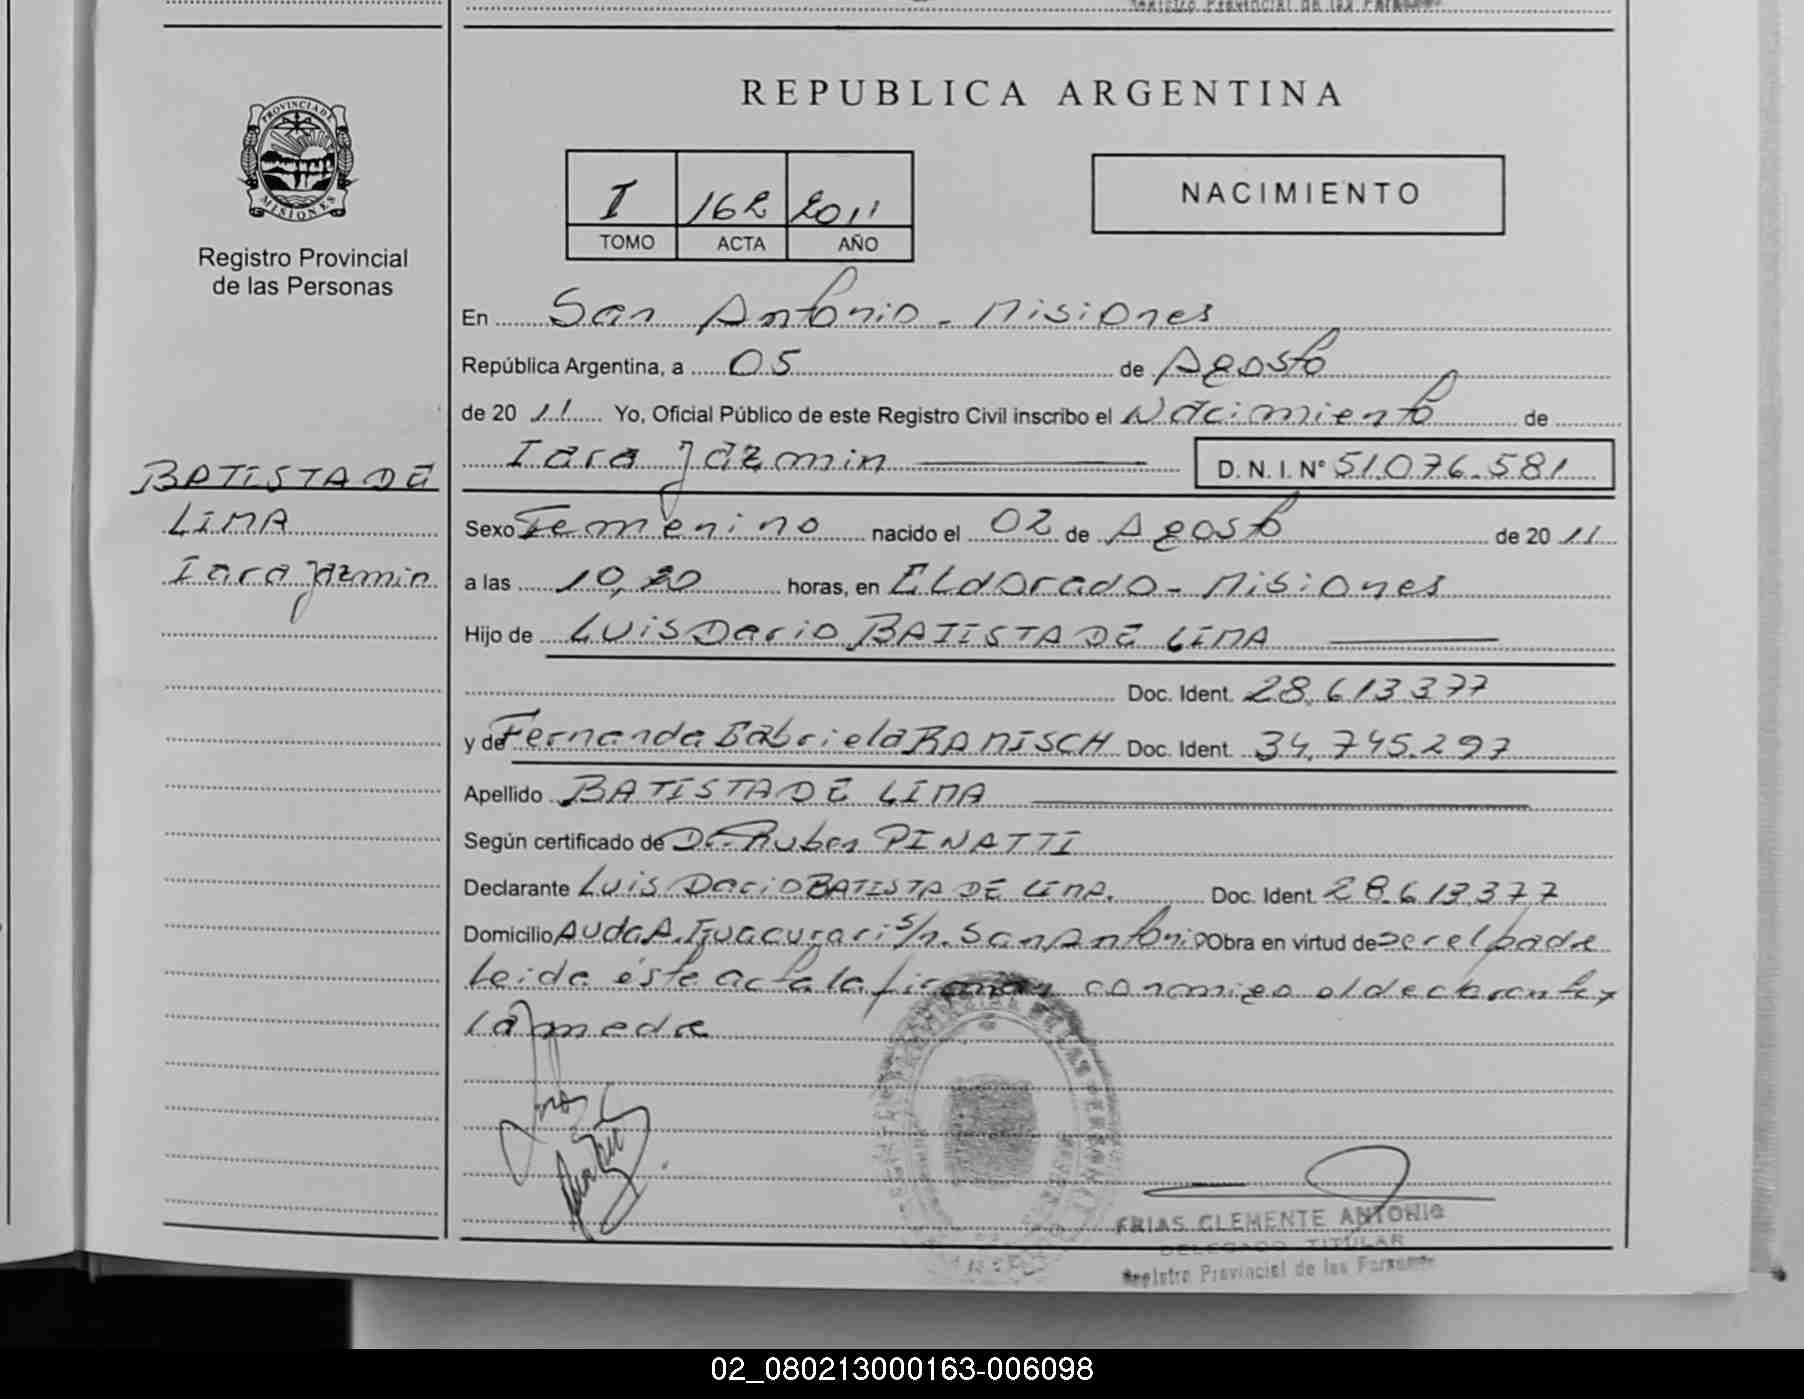 Registro Provincial de las Personas
REPUBLICA ARGENTINA
PROVINCIA DE
MISIONES
Registro Provincial
de las Personas
I 162 2011
TOMO ACTA AÑO
NACIMIENTO
En San Antonio - Misiones
República Argentina, a 05 de Agosto
de 20 11 Yo, Oficial Público de este Registro Civil inscribo el Nacimiento de
Iara Jazmin D. N. I. N° 51.076.581
BATISTA DE
LIMA
Iara Jazmin
Sexo Femenino nacido el 02 de Agosto de 20 11
a las 10,20 horas, en ELdorado - Misiones
Hijo de Luis Dario BATISTA DE LIMA
Doc. Ident. 28.613.377
y de Fernanda Gabriela RAMISCH Doc. Ident. 34.745.297
Apellido BATISTA DE LIMA
Según certificado de Dr. Ruben PINATTI
Declarante Luis Dario BATISTA DE LIMA. Doc. Ident. 28.613.377
Domicilio Avda A. Guacurari S/n. San Antonio Obra en virtud de ser el padre
Leida ésta acta la firman conmigo el declarante y
la madre
FRIAS CLEMENTE ANTONIO
DELEGADO TITULAR
Registro Provincial de las Personas
02_080213000163-006098